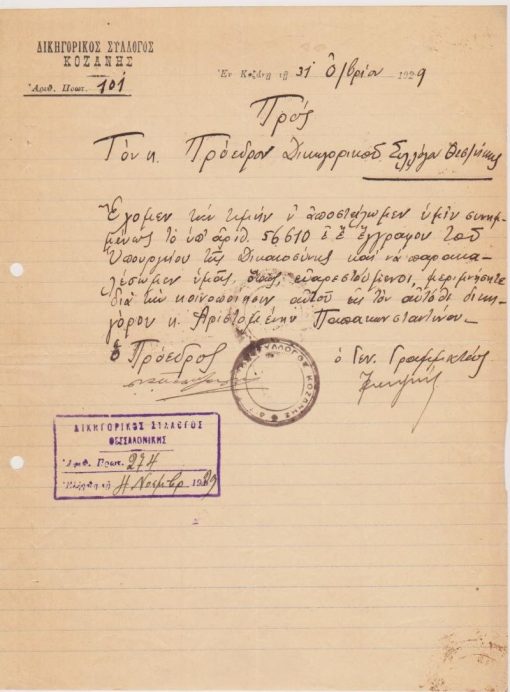 ΔΙΚΗΓΟΡΙΚΟΣ ΣΥΛΛΟΓΟΣ
ΚΟΖΑΝΗΣ
Ἀριθ. Πρωτ. 101
Ἐν Κοζάνῃ τῇ 31 Ὀ/βρίου 1929
Πρός
Τόν κ. Πρόεδρον Δικηγορικοῦ Συλλόγου Θεσ/νίκης
Ἔχομεν τήν τιμήν ν' ἀποστείλωμεν ὑμῖν συνημ-
μένως τό ὑπ' ἀριθ. 56610 ἔγγραφον τοῦ
Ὑπουργείου τῆς Δικαιοσύνης καί νά παρακα-
λέσωμεν ὑμᾶς, ὅπως, εὐαρεστούμενοι, μεριμνήσητε
διά τήν κοινοποίησιν αὐτοῦ εἰς τόν αὐτόθι δικη-
γόρον κ. Ἀριστομένην Παπακωνσταντίνου.
ὁ Πρόεδρος
ὁ Γεν. Γραμματεύς
ΣΥΛΛΟΓΟΣ ΚΟΖΑΝΗΣ
ΔΙΚΗΓΟΡΙΚΟΣ ΣΥΛΛΟΓΟΣ
ΘΕΣΣΑΛΟΝΙΚΗΣ
Ἀριθ. Πρωτ. 274
Ἐλήφθη τῇ 4 Νοεμβρ 1929